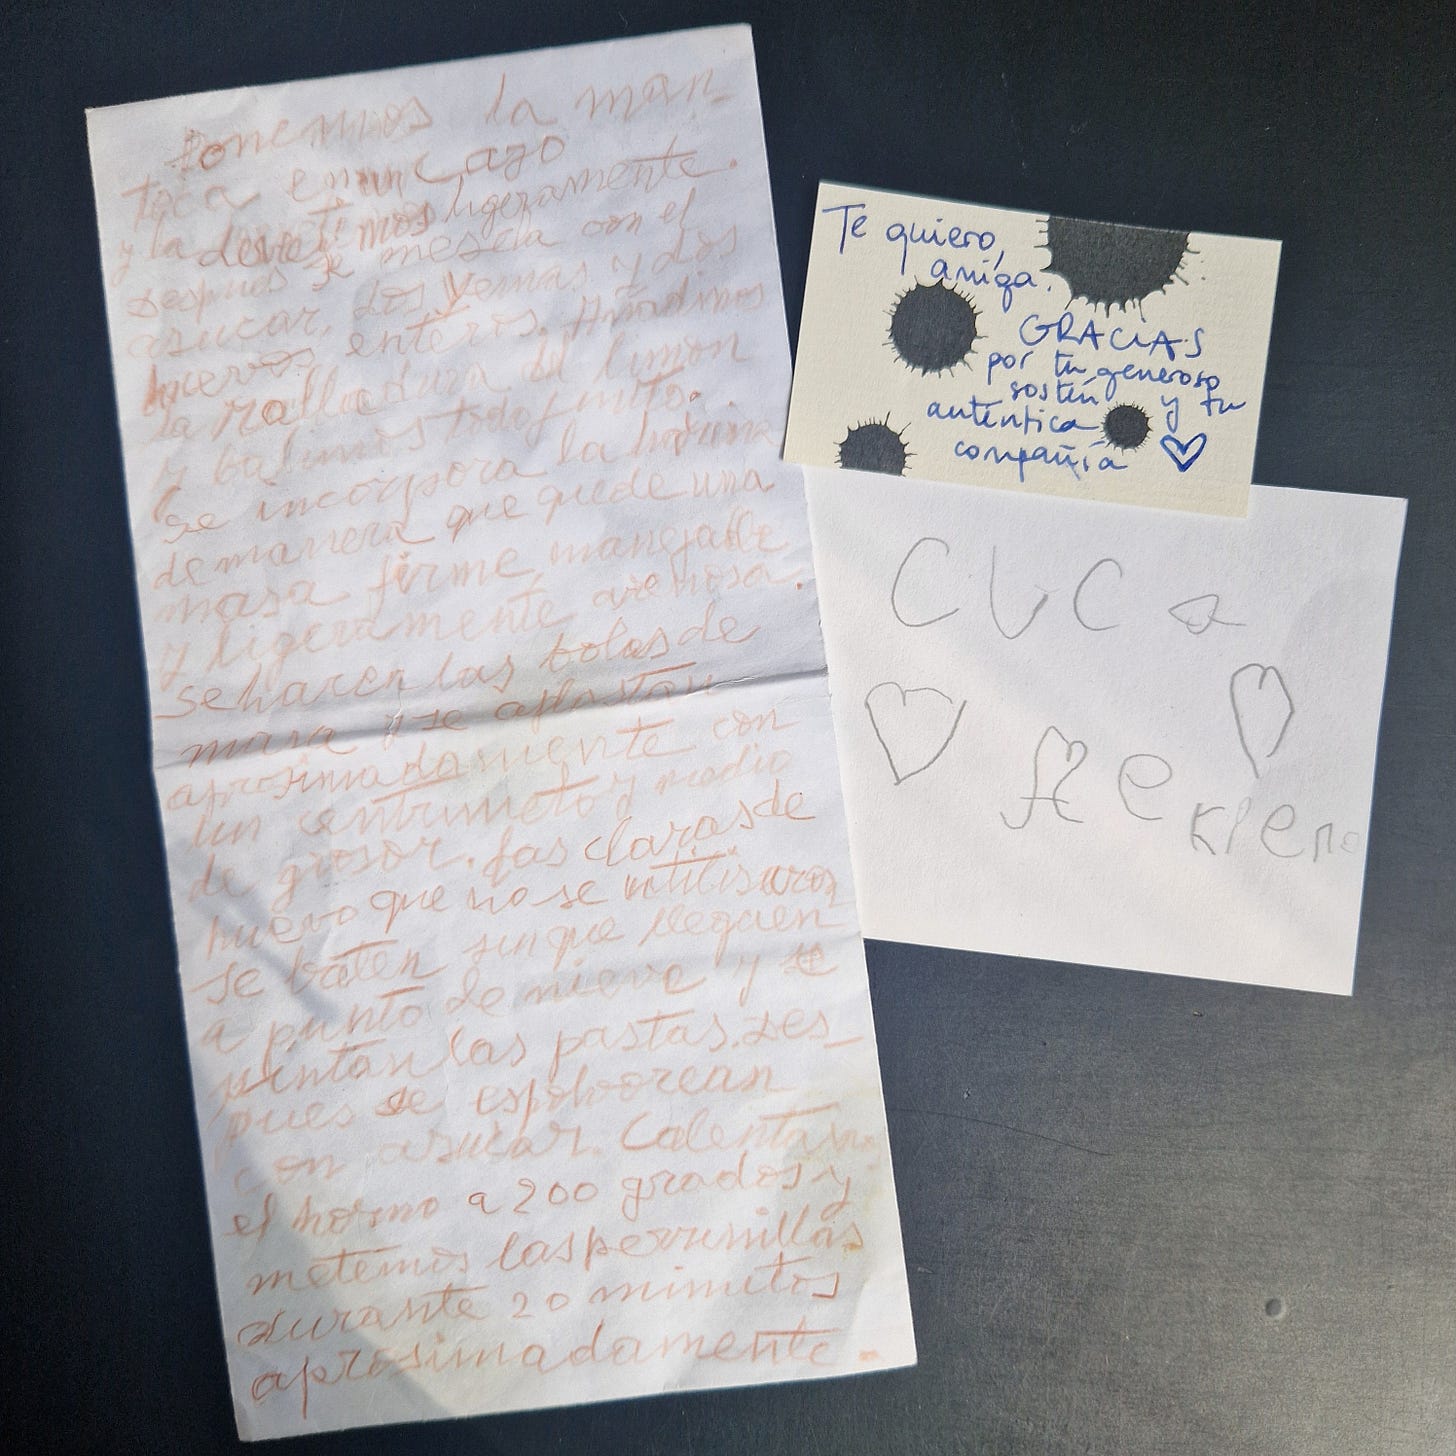 Ponemos la man-
teca enunc azo
y la derretimos ligeramente.
Despues se mescla con el
asucar, dos yemas y dos
huevos enteros. Añadimos
la ralladura del limon
y batimos todo junto.
Se incorpora la harina
de manera que quede una
masa firme, manejable
y ligeramente arenosa.
se hacen las bolas de
masa y se aplastan
aprosimadamente con
un centrimeto y medio
de grosor. Las claras de
huevo que no se utilisaron
se baten sin que lleguen
a punto de nieve y se
pintan las pastas. Des_
pues se espolvorean
con asucar. Calentamos
el horno a 200 grados y
metemos las perrunillas
durante 20 minutos
aprosimadamente.
Te quiero,
amiga.
GRACIAS
por tu generoso
sostén y tu
auténtica
compañía
CUCa
te
kiero